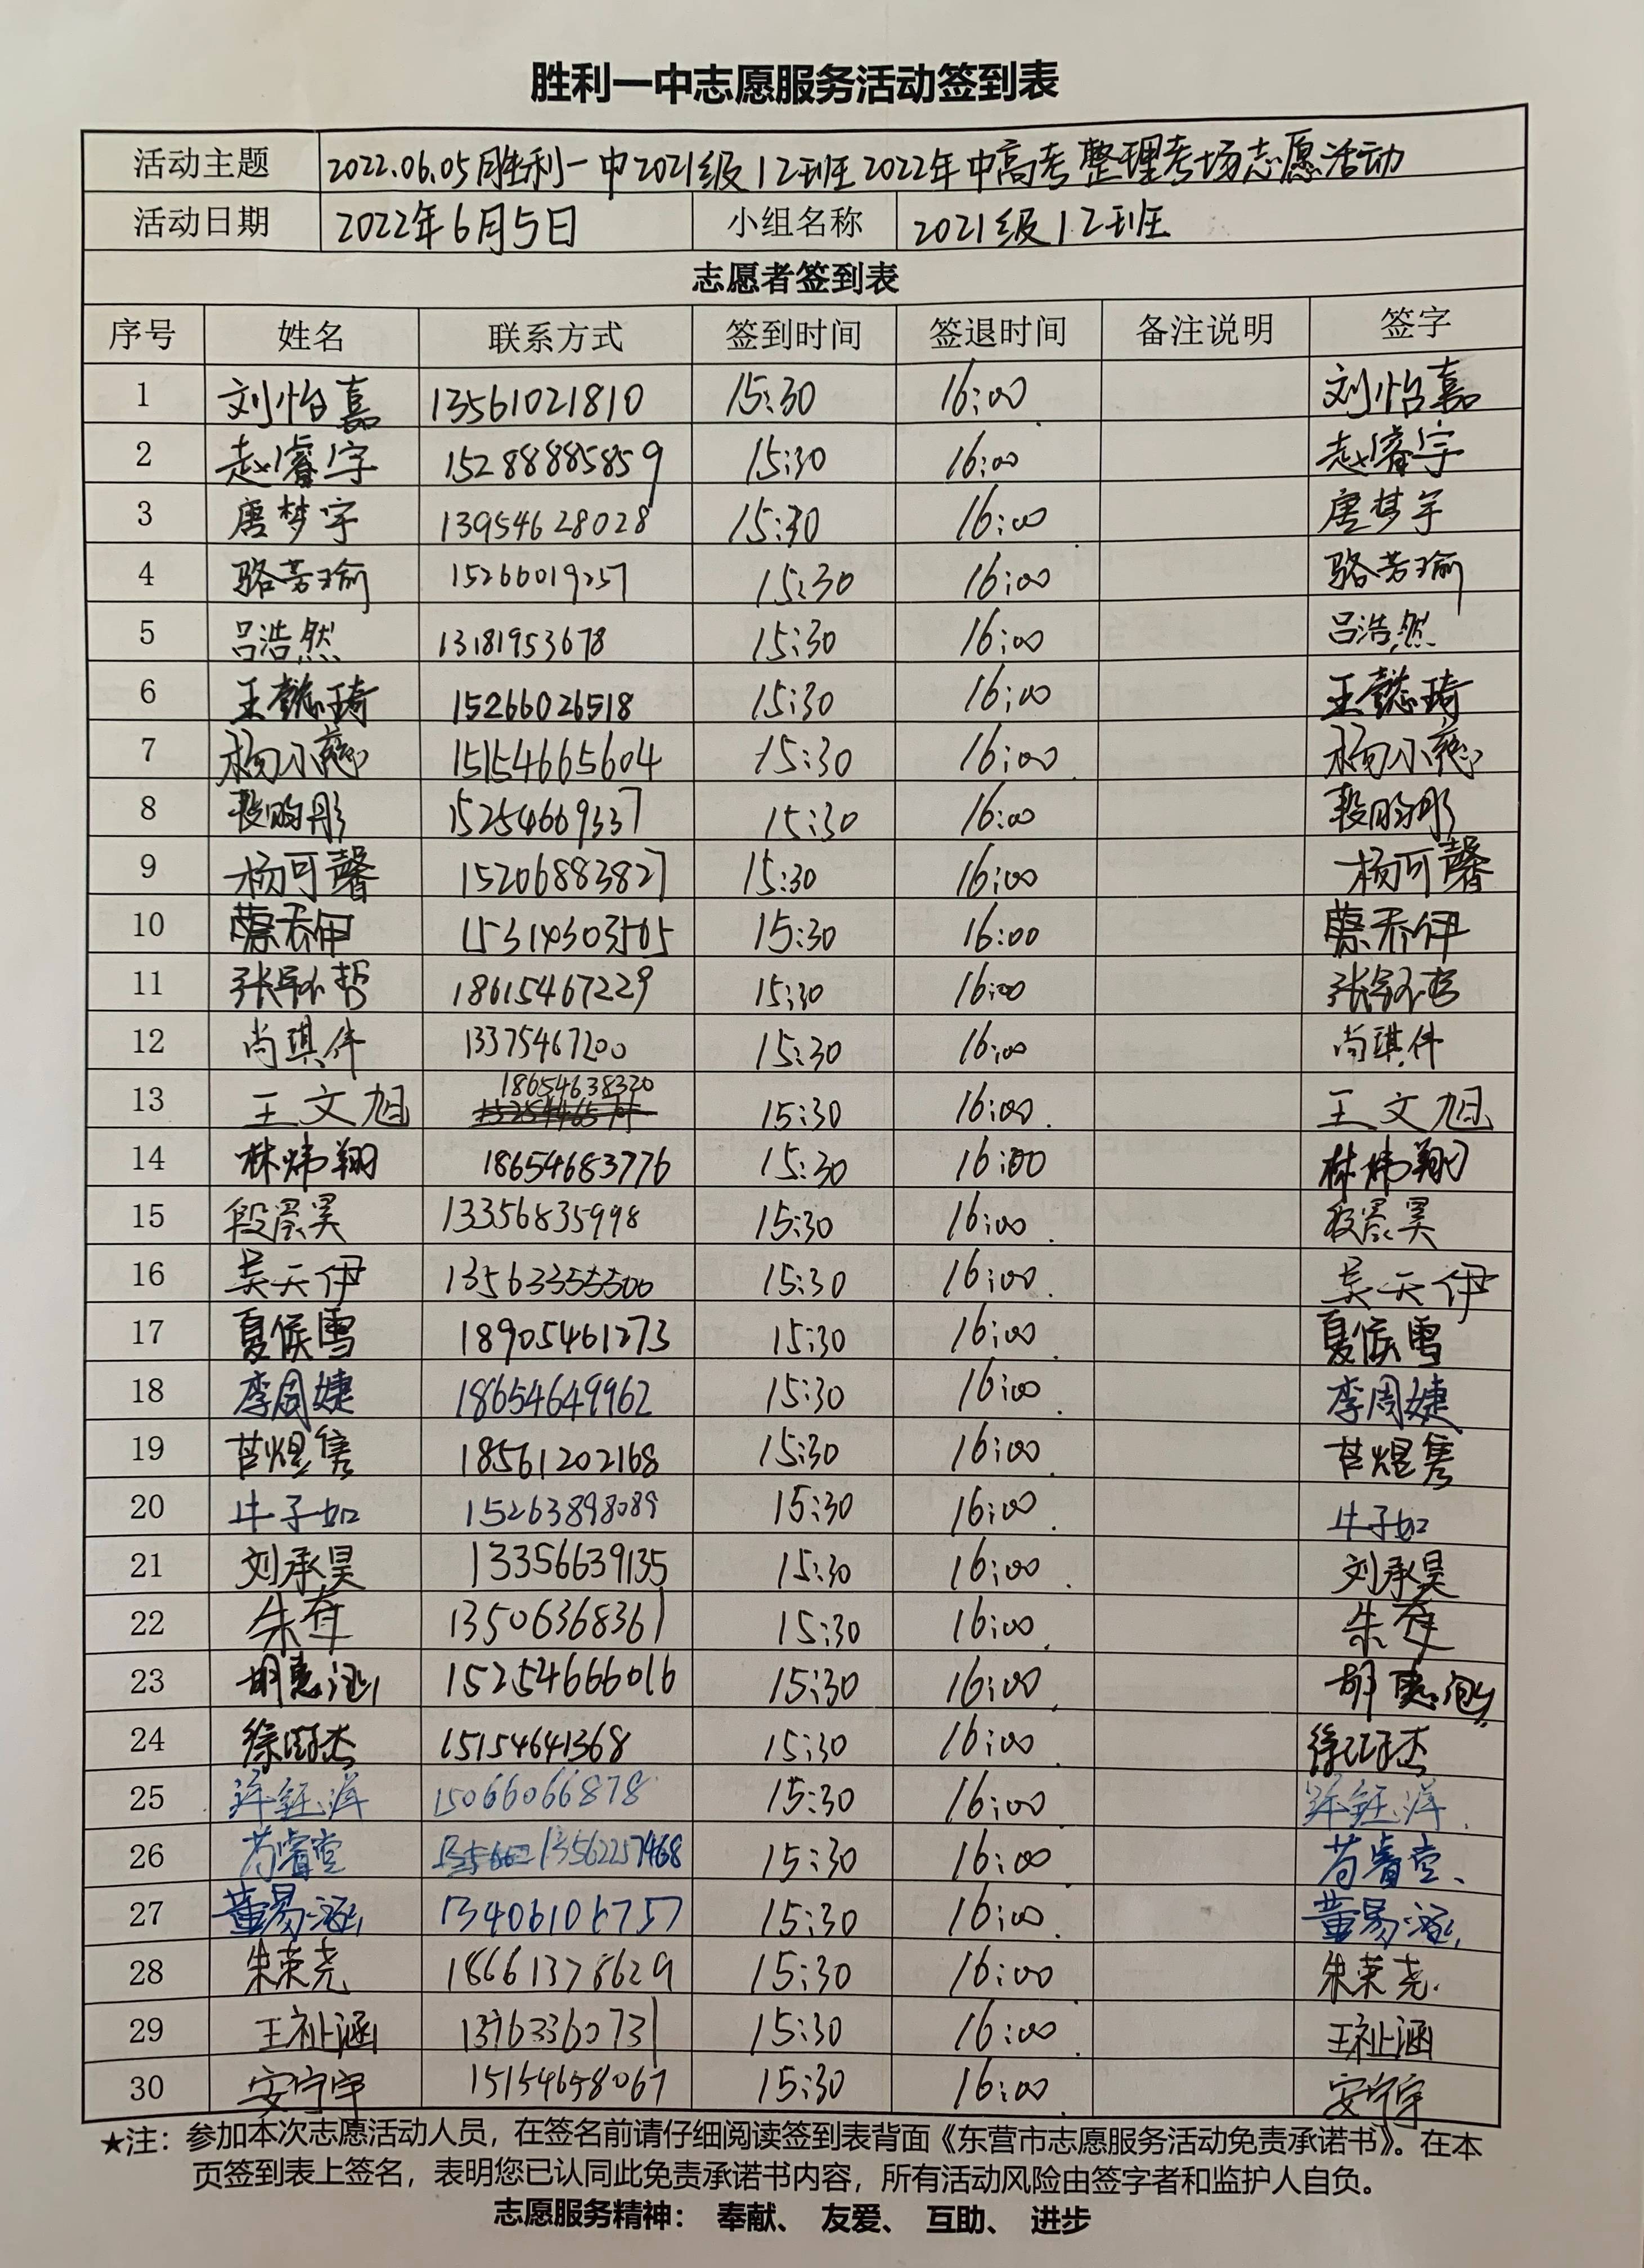 胜利一中志愿服务活动签到表
活动主题 2022.06.05胜利一中2021级12班2022年中高考整理考场志愿活动
活动日期 2022年6月5日 小组名称 2021级12班
志愿者签到表
序号 姓名 联系方式 签到时间 签退时间 备注说明 签字
1 刘怡嘉 13561021810 15:30 16:00 刘怡嘉
2 赵睿宇 15288885859 15:30 16:00 赵睿宇
3 唐梦宇 13954628028 15:30 16:00 唐梦宇
4 骆芳瑜 15266019257 15:30 16:00 骆芳瑜
5 吕浩然 13181953678 15:30 16:00 吕浩然
6 王懿琦 15266026518 15:30 16:00 王懿琦
7 杨小慈 15154665604 15:30 16:00 杨小慈
8 15254669337 15:30 16:00
9 杨可馨 15206883827 15:30 16:00 杨可馨
10 蔡乔伊 15314303505 15:30 16:00 蔡乔伊
11 18615467229 15:30 16:00
12 尚琪件 13375467200 15:30 16:00 尚琪件
13 王文旭 18654638320 15:30 16:00 王文旭
14 林炜翔 18654683776 15:30 16:00 林炜翔
15 段景昊 13356835998 15:30 16:00 段景昊
16 吴天伊 13563355500 15:30 16:00 吴天伊
17 夏侯雪 18905461273 15:30 16:00 夏侯雪
18 李周婕 18654649962 15:30 16:00 李周婕
19 苕煜隽 18561202168 15:30 16:00 苕煜隽
20 牛子如 15263898089 15:30 16:00 牛子如
21 刘承昊 13356639135 15:30 16:00 刘承昊
22 13506368361 15:30 16:00
23 胡惠泓 15254666016 15:30 16:00 胡惠泓
24 15154641368 15:30 16:00
25 15066066878 15:30 16:00
26 苟睿堂 13562257468 15:30 16:00 苟睿堂
27 董易涵 13406106757 15:30 16:00 董易涵
28 朱荣尧 18661378629 15:30 16:00 朱荣尧
29 王祉涵 13763360731 15:30 16:00 王祉涵
30 安宁宇 15154658067 15:30 16:00 安宁宇
★注：参加本次志愿活动人员，在签名前请仔细阅读签到表背面《东营市志愿服务活动免责承诺书》。在本
页签到表上签名，表明您已认同此免责承诺书内容，所有活动风险由签字者和监护人自负。
志愿服务精神： 奉献、 友爱、 互助、 进步